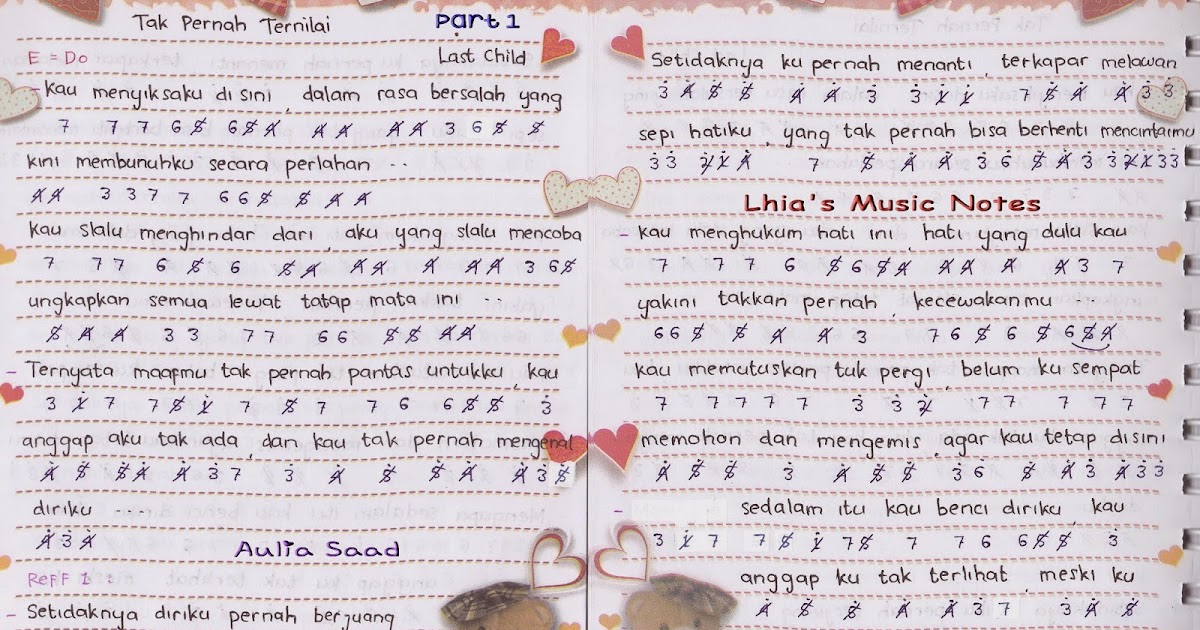 Tak Pernah Ternilai
Part 1
E = Do
Last Child
- Kau menyiksaku di sini , dalam rasa bersalah yang
7 7 7 6 5 6 5 4 4 4 4 4 3 6 5 5
kini membunuhku secara perlahan ..
4 4 3 3 7 7 6 6 5 5 4 4
kau slalu menghindar dari , aku yang slalu mencoba
7 7 7 6 5 6 5 4 4 4 4 4 4 3 6 5
ungkapkan semua lewat tatap mata ini ..
5 4 4 3 3 7 7 6 6 5 5 4 4
- Ternyata maafmu tak pernah pantas untukku , kau
3 1 7 7 5 1 7 5 7 7 6 6 5 5 3
anggap aku tak ada , dan kau tak pernah mengenal
4 5 5 4 4 3 7 3 4 5 5 4 4 3 5
diriku ....
4 3 4
Aulia Saad
Reff 1 :
- Setidaknya diriku pernah berjuang
Setidaknya ku pernah menanti , terkapar melawan
3 4 5 5 4 4 3 3 1 1 7 5 4 4 3 3
sepi hatiku , yang tak pernah bisa berhenti mencintaimu
3 3 2 1 4 7 5 4 4 3 6 5 4 3 3 2 1 3 3
Lhia's Music Notes
- kau menghukum hati ini , hati yang dulu kau
7 7 7 6 5 6 5 4 4 4 4 4 3 7
yakini takkan pernah , kecewakanmu ...
6 6 5 5 4 4 3 7 6 5 6 5 6 5 4
kau memutuskan tuk pergi , belum ku sempat
7 7 7 7 7 3 3 2 7 7 7 7 7
memohon dan mengemis , agar kau tetap disini
4 5 5 3 4 5 5 3 6 5 4 3 4 3 3
- sedalam itu kau benci diriku , kau
3 1 7 7 5 1 7 5 7 7 6 6 5 5 3
anggap ku tak terlihat , meski ku
4 5 5 4 4 3 7 3 4 5